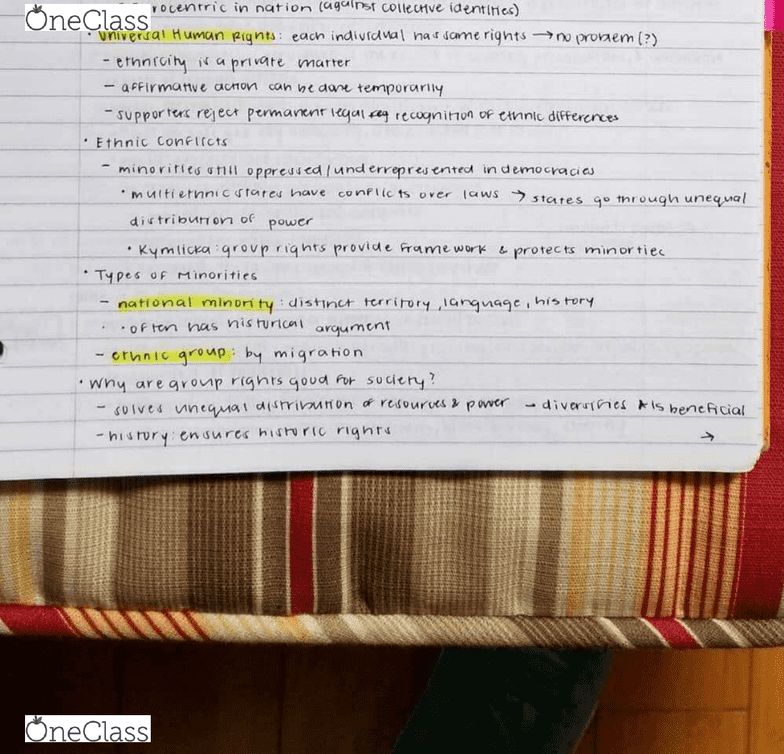 OneClass
rocentric in nation (against collective identities)
• Universal Human Rights: each individual has same rights → no problem (?)
- ethnicity is a private matter
- affirmative action can be done temporarily
- supporters reject permanent legal recognition of ethnic differences
• Ethnic Conflicts
- minorities still oppressed/underrepresented in democracies
• multiethnic states have conflicts over laws → states go through unequal
distribution of power
• Kymlicka: group rights provide framework & protects minorties
• Types of Minorities
- national minority: distinct territory, language, history
• often has historical argument
- ethnic group: by migration
• Why are group rights good for society?
- solves unequal distribution of resources & power → diversifies & is beneficial
- history: ensures historic rights →
OneClass